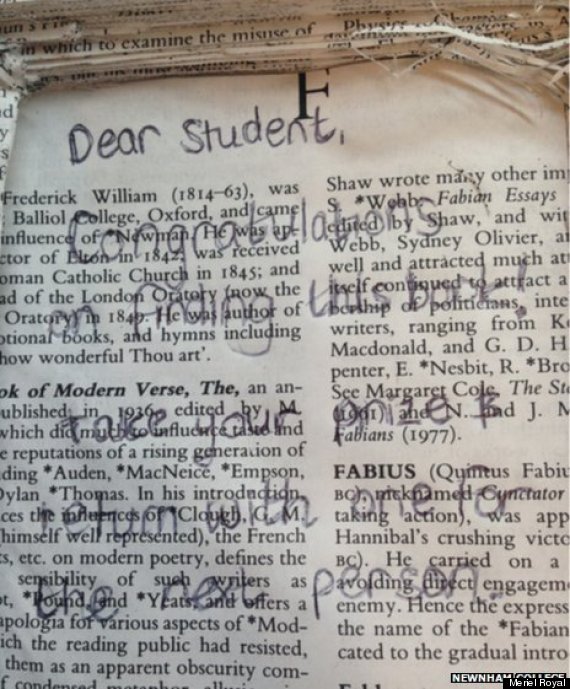 in which to examine the misuse of
F
Dear Student,
Congratulations
on finding this book!
take your prize &
return with one for
the next person.
Frederick William (1814–63), was
Balliol College, Oxford, and came
influence of *Newman. He was
of Elton in 1842, was received
Catholic Church in 1845; and
of the London Oratory (now the
Oratory) in 1849. He was author of
books, and hymns including
how wonderful Thou art'.
of Modern Verse, The, an an-
in 1936, edited by M.
which did much to influence taste and
reputations of a rising generation of
*Auden, *MacNeice, *Empson,
*Thomas. In his introduction
the influences of *Clough, G. M.
himself well represented), the French
etc. on modern poetry, defines the
sensibility of such writers as
*Pound, and *Yeats, and offers a
apologia for various aspects of *Mod-
the reading public had resisted,
them as an apparent obscurity com-
Shaw wrote many other
S. *Webb, Fabian Essays
edited by Shaw, and
Webb, Sydney Olivier,
well and attracted much
itself continued to attract a
of politicians,
writers, ranging from
Macdonald, and G. D. H.
E. *Nesbit, R.
See Margaret Cole, The
(1961) and N. and J. M.
Fabians (1977).
FABIUS (Quintus
BC) nicknamed Cunctator
taking action), was
Hannibal's crushing
BC). He carried on a
avoiding direct
enemy. Hence the
the name of the *Fabian
cated to the gradual
NEWNHAM COLLEGE
Meriel Royal